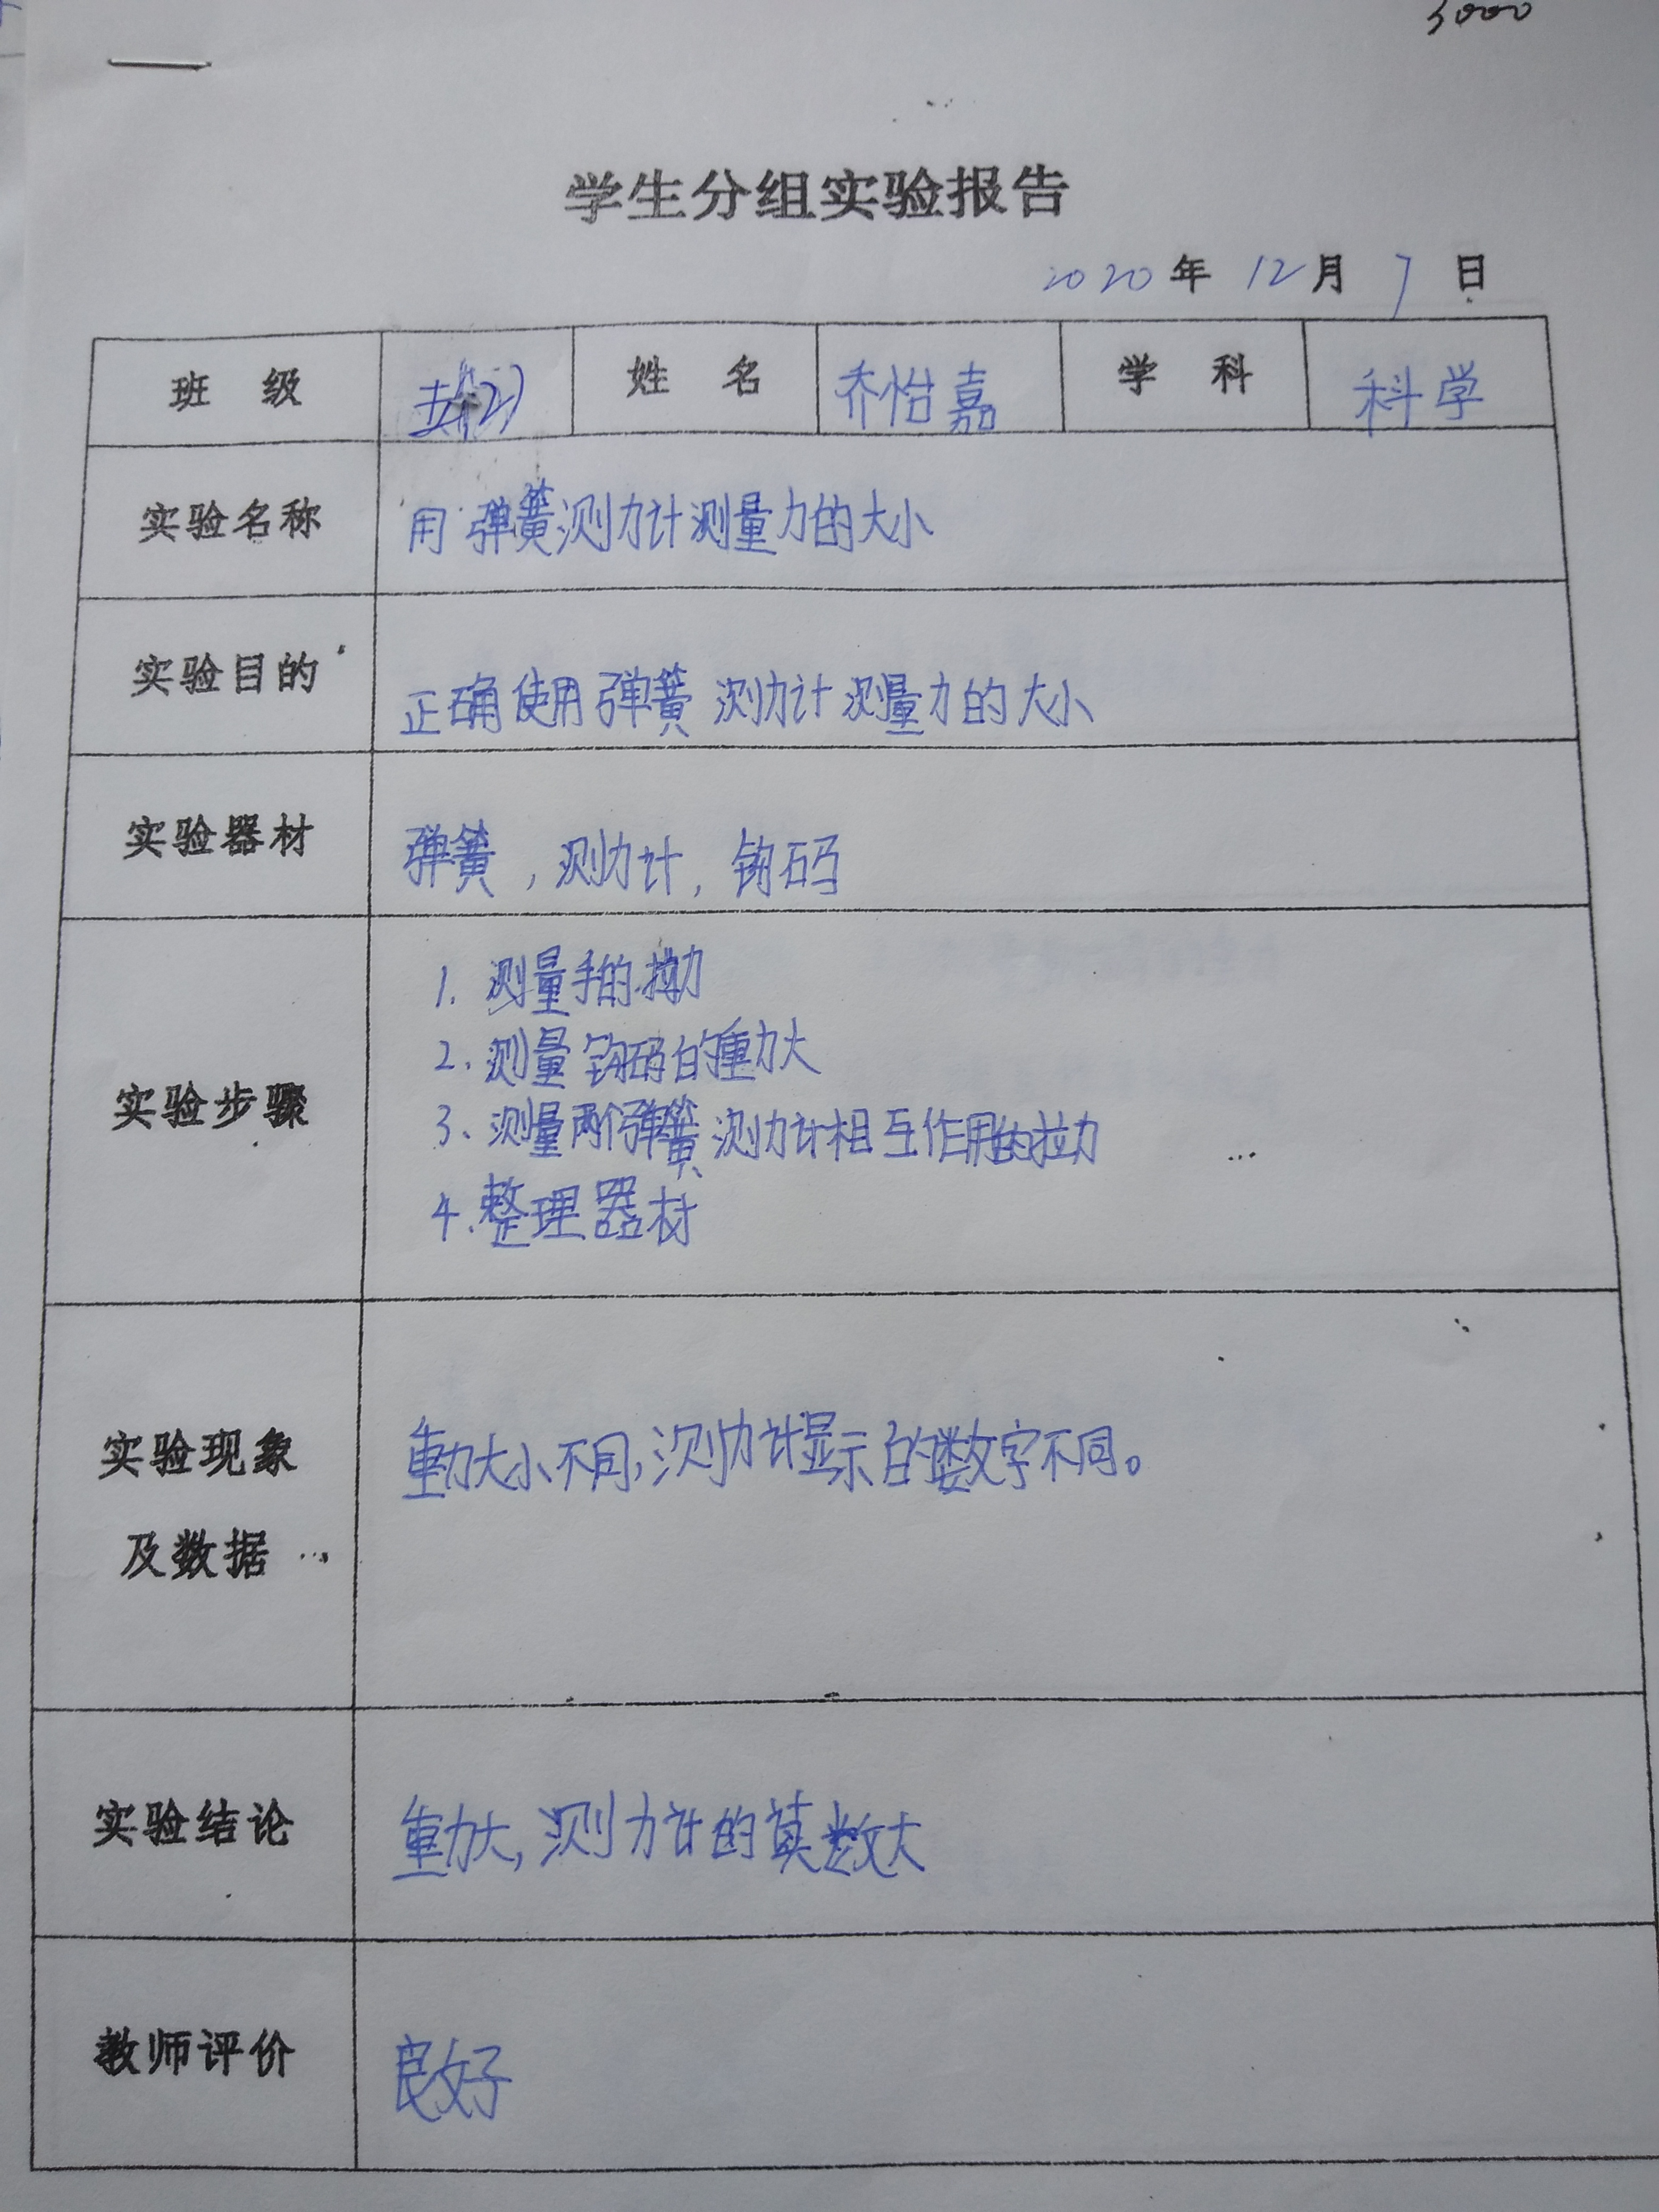 5000
学生分组实验报告
2020年12月7日
班级 五(2) 姓名 乔怡嘉 学科 科学
实验名称 用弹簧测力计测量力的大小
实验目的 正确使用弹簧测力计测量力的大小
实验器材 弹簧,测力计,钩码
实验步骤
1.测量手的拉力
2.测量钩码的重力大
3、测量两个弹簧测力计相互作用的拉力
4.整理器材
实验现象
及数据
重力大小不同,测力计显示的数字不同。
实验结论 重力大,测力计的读数大
教师评价 良好